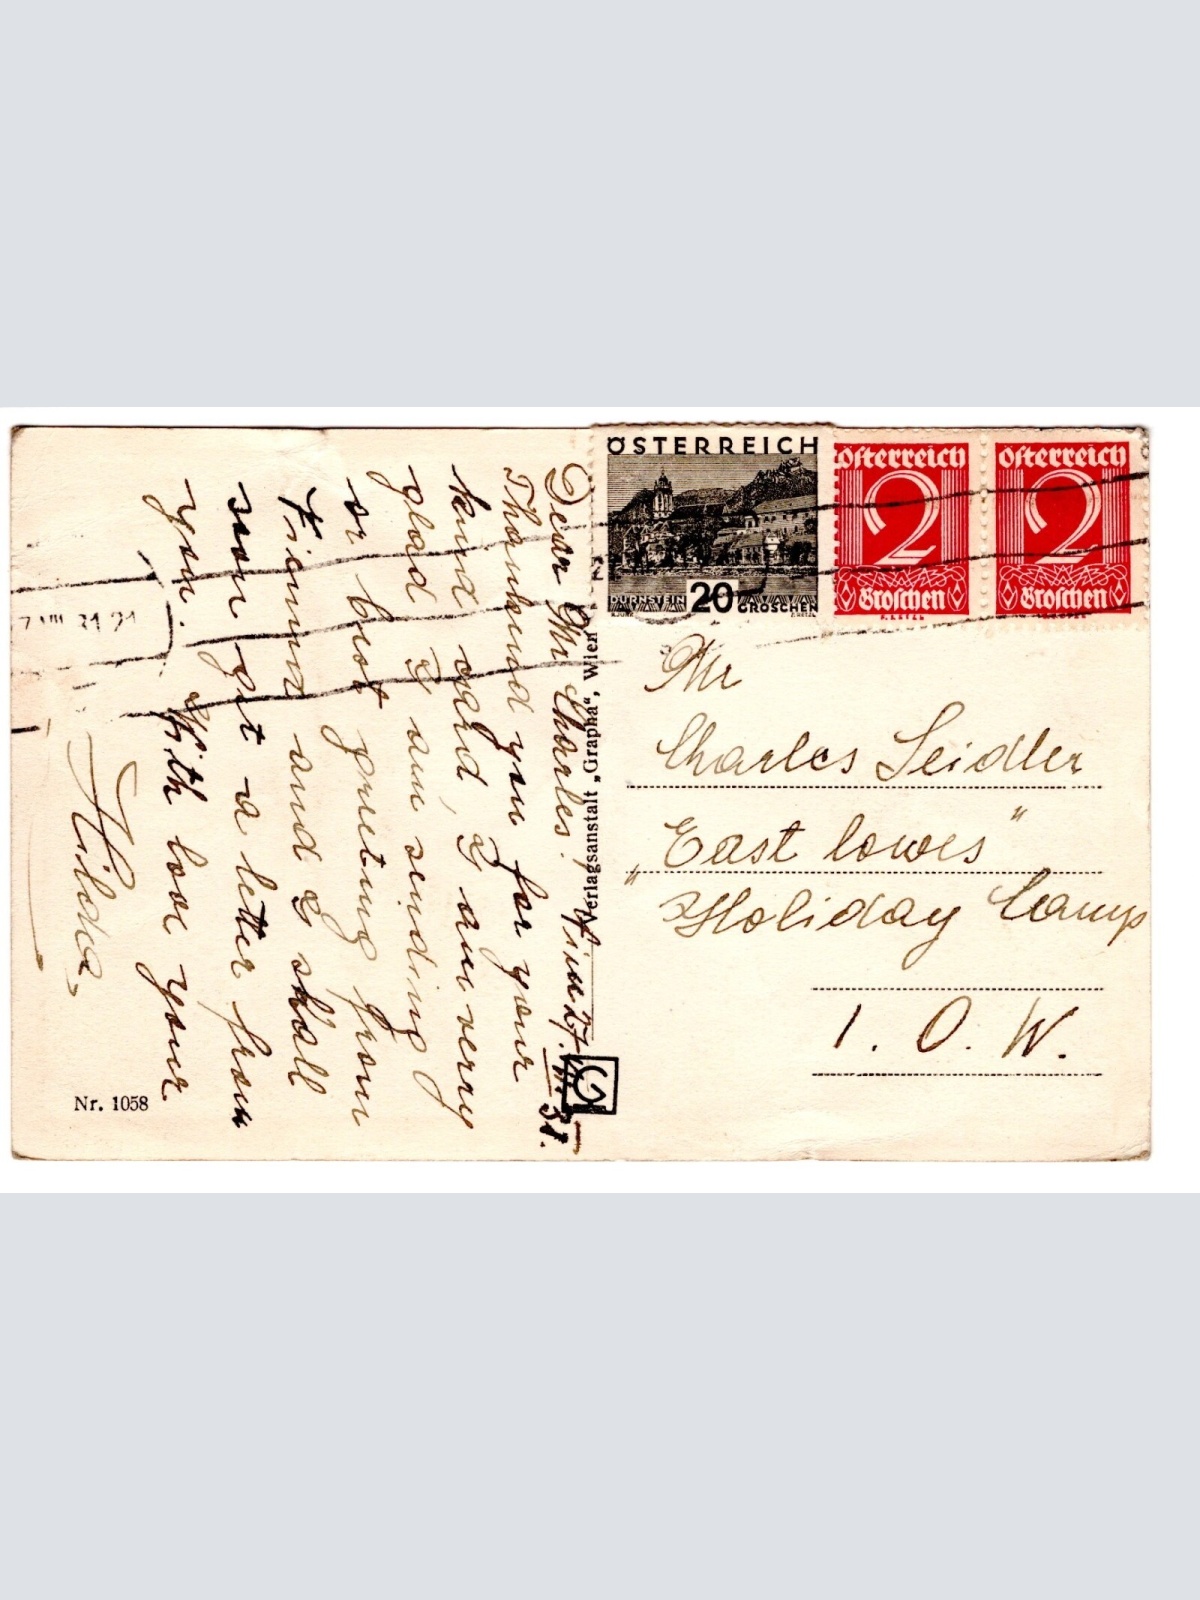 Dear Mr Charles! Wien 27. VII 31.
Thankend you for your
kind card, I am very
glad I am sending
or best greeting from
Vienna and I shall
soon get a letter from
you. With love your
Hilda
Verlagsanstalt „Grapha“, Wien
Nr. 1058
ÖSTERREICH
DÜRNSTEIN 20 GROSCHEN
Österreich
2
Groschen
Österreich
2
Groschen
VIII 31 21
Mr
Charles Seidler
„East Cowes"
„Holiday Camp
I. O. W.